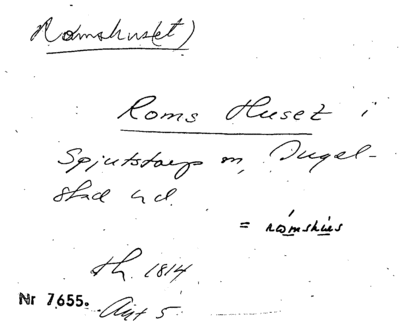 Römshus(et)
Roms Huset i
Spjutstorp m, Ingel-
stad hd.
= römshùs
th. 1814
Nr 7655.
Avt 5